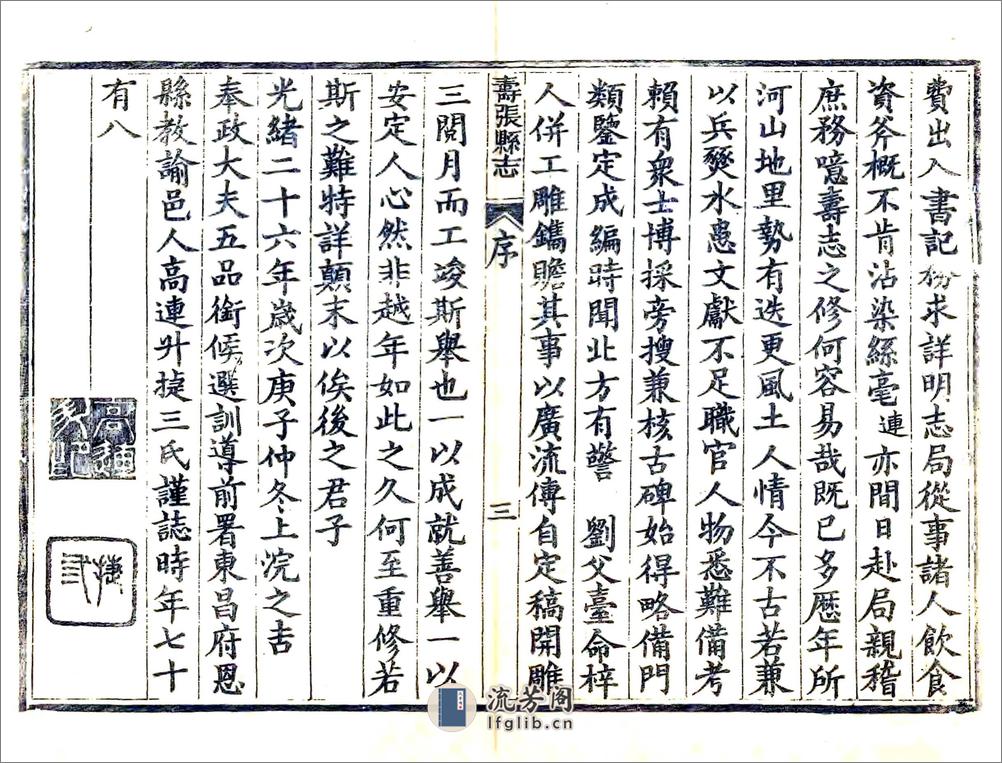 費出入書記務求詳明志局從事諸人飲食
資斧概不肯沾染絲毫連亦間日赴局親稽
庶務噫壽志之修何容易哉既已多歷年所
河山地里勢有迭更風土人情今不古若兼
以兵燹水患文獻不足職官人物悉難備考
賴有衆士博採旁搜兼核古碑始得略備門
類鑒定成編時聞北方有警 劉父臺命梓
人併工雕鐫贍其事以廣流傳自定稿開雕
壽張縣志 序 三
三閱月而工竣斯舉也一以成就善舉一以
安定人心然非越年如此之久何至重修若
斯之難特詳顛末以俟後之君子
光緒二十六年歲次庚子仲冬上浣之吉
奉政大夫五品銜候選訓導前署東昌府恩
縣教諭邑人高連升捷三氏謹誌時年七十
有八
捷三
流芳阁
lfglib.cn